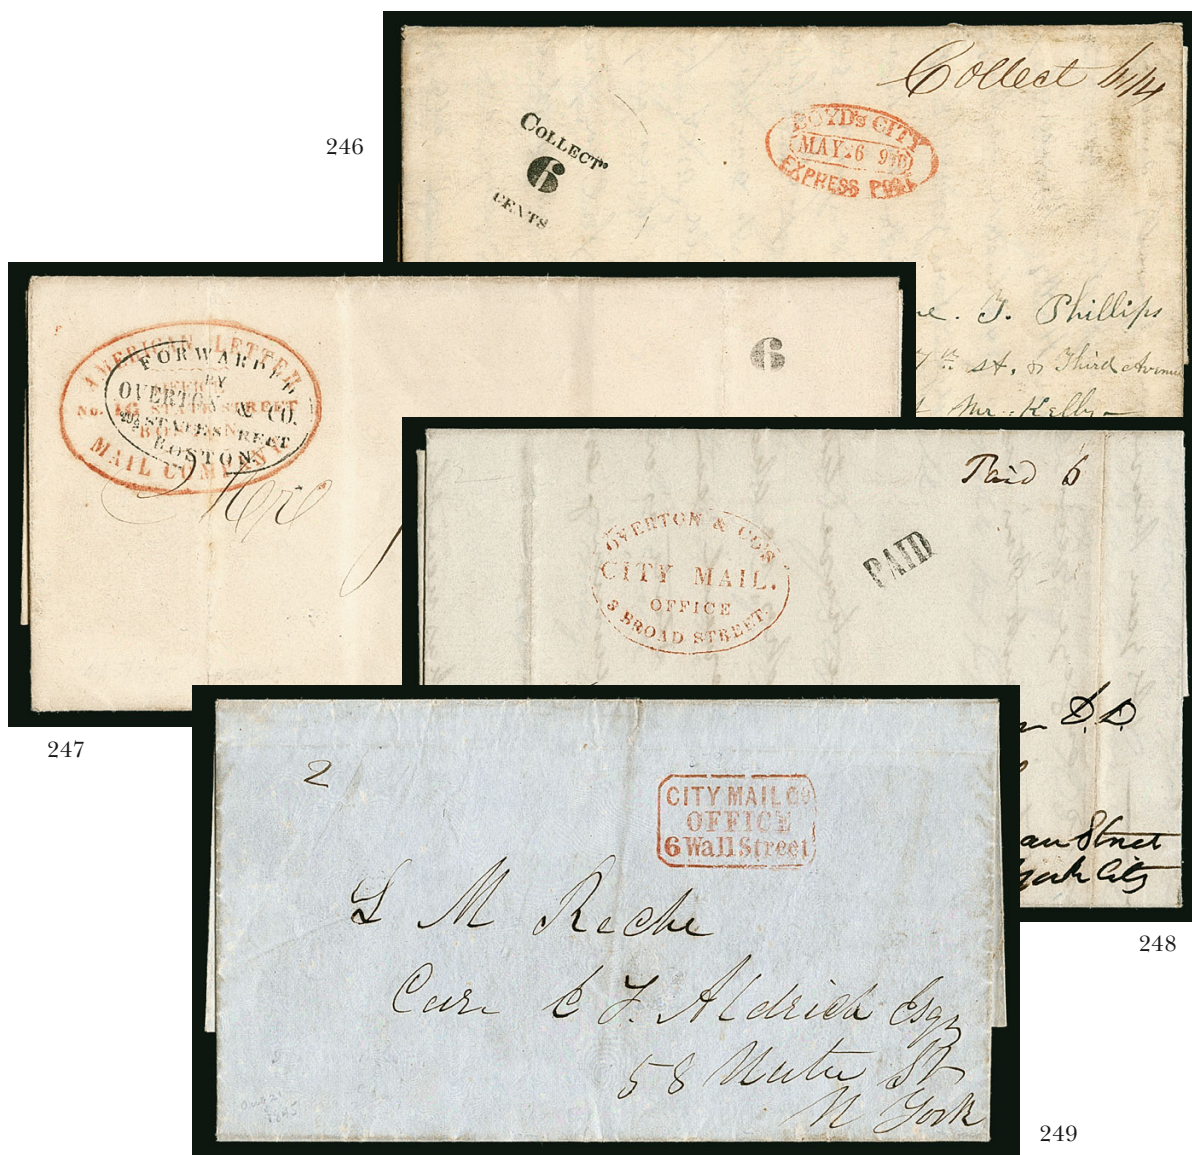 246
Collect
COLLECT
6
CENTS
BOYD'S CITY
MAY 26
EXPRESS POST
J. Phillips
7th st. & Third Avenue
Mr. Kelly
AMERICAN LETTER
OFFICE
No. 16 STATE STREET
BOSTON
MAIL COMPANY
FORWARDED
BY
OVERTON & CO.
STATE STREET
BOSTON
6
247
Paid 6
PAID
OVERTON & CO'S
CITY MAIL.
OFFICE
3 BROAD STREET.
D.D
Street
York City
248
2
CITY MAIL Co
OFFICE
6 Wall Street
L M Reche
Care C F. Aldrich Esqr
58 Water St
N York
249